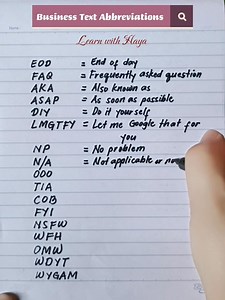 Business Text Abbreviations
Learn with Haya
EOD = End of day
FAQ = Frequently asked question
AKA = Also known as
ASAP = As soon as possible
DIY = Do it yourself
LMGTFY = Let me Google that for
you
NP = No problem
N/A = Not applicable or no
OOO
TIA
COB
FYI
NSFW
WFH
OMW
WDYT
WYGAM